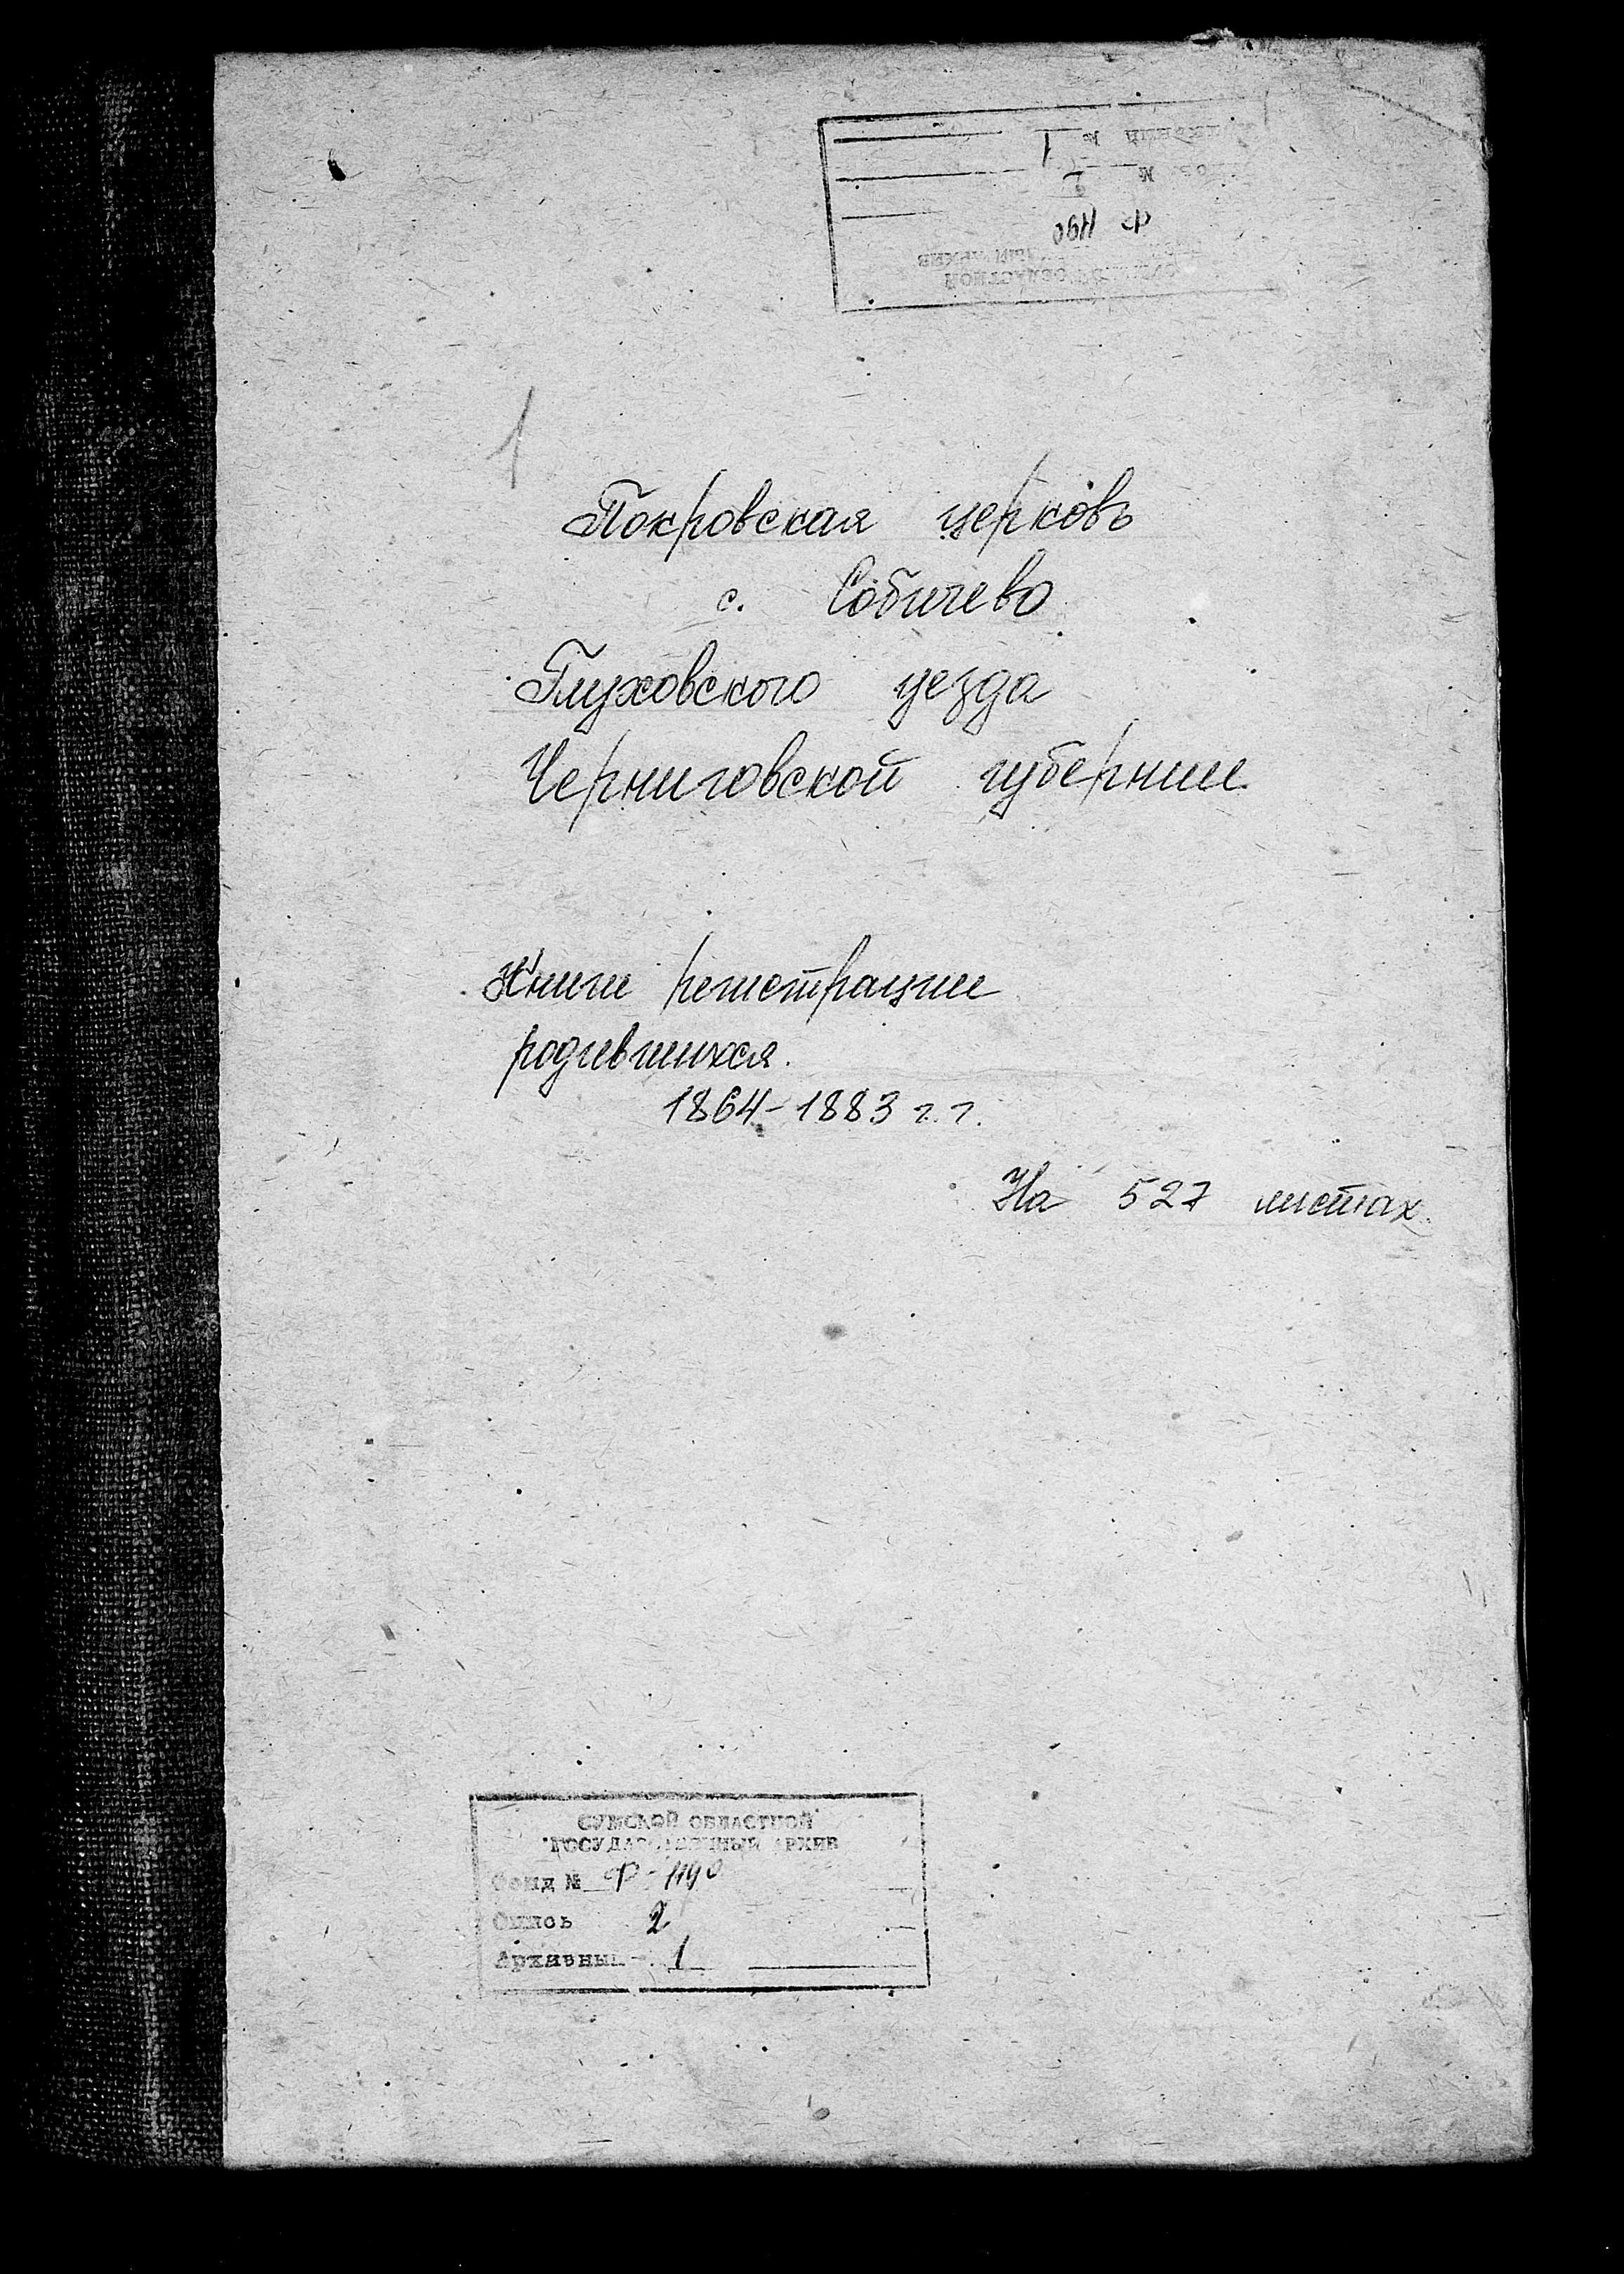 Ф 1190
1
Покровская церковь
с. Собичево
Глуховского уезда
Черниговской губернии
Книги регистрации
родившихся.
1864-1883 г.г.
На 527 листах.
СУМСКОЙ ОБЛАСТНОЙ
ГОСУДАРСТВЕННЫЙ АРХИВ
Фонд № Ф-1190
Опись 2
Архивный 1